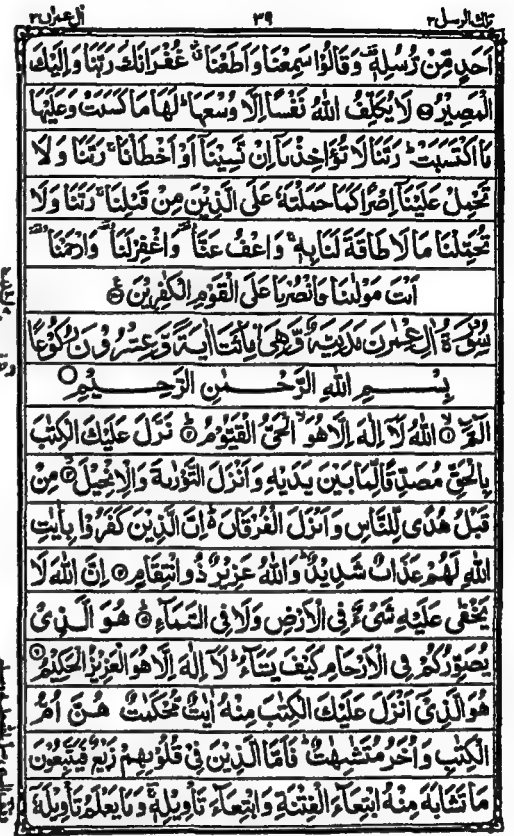 تلك الرسل ٣ ٣٩ اٰل عمرٰن ٣
اَحَدٍ مِّنْ رُّسُلِهٖ ۟ وَقَالُوْا سَمِعْنَا وَاَطَعْنَا ۗ غُفْرَانَكَ رَبَّنَا وَاِلَيْكَ
الْمَصِيْرُ ۝ لَا يُكَلِّفُ اللّٰهُ نَفْسًا اِلَّا وُسْعَهَا ؕ لَهَا مَا كَسَبَتْ وَعَلَيْهَا
مَا اكْتَسَبَتْ ؕ رَبَّنَا لَا تُؤَاخِذْنَاۤ اِنْ نَّسِيْنَاۤ اَوْ اَخْطَاْنَا ۚ رَبَّنَا وَلَا
تَحْمِلْ عَلَيْنَاۤ اِصْرًا كَمَا حَمَلْتَهٗ عَلَى الَّذِيْنَ مِنْ قَبْلِنَا ۚ رَبَّنَا وَلَا
تُحَمِّلْنَا مَا لَا طَاقَةَ لَنَا بِهٖ ۚ وَاعْفُ عَنَّا ۥ وَاغْفِرْ لَنَا ۥ وَارْحَمْنَا ۥ
اَنْتَ مَوْلٰىنَا فَانْصُرْنَا عَلَى الْقَوْمِ الْكٰفِرِيْنَ ۝
سُوْرَةُ اٰلِ عِمْرٰنَ مَدَنِيَّةٌ وَّهِيَ مِائَتَا اٰيَةً وَّعِشْرُوْنَ رُكُوْعًا
بِسْمِ اللّٰهِ الرَّحْمٰنِ الرَّحِيْمِ
الٓمّٓ ۝ اللّٰهُ لَاۤ اِلٰهَ اِلَّا هُوَ ۙ الْحَيُّ الْقَيُّوْمُ ۝ نَزَّلَ عَلَيْكَ الْكِتٰبَ
بِالْحَقِّ مُصَدِّقًا لِّمَا بَيْنَ يَدَيْهِ وَاَنْزَلَ التَّوْرٰىةَ وَالْاِنْجِيْلَ ۝ مِنْ
قَبْلُ هُدًى لِّلنَّاسِ وَاَنْزَلَ الْفُرْقَانَ ؕ اِنَّ الَّذِيْنَ كَفَرُوْا بِاٰيٰتِ
اللّٰهِ لَهُمْ عَذَابٌ شَدِيْدٌ ؕ وَاللّٰهُ عَزِيْزٌ ذُو انْتِقَامٍ ۝ اِنَّ اللّٰهَ لَا
يَخْفٰى عَلَيْهِ شَيْءٌ فِي الْاَرْضِ وَلَا فِي السَّمَآءِ ۝ هُوَ الَّذِيْ
يُصَوِّرُكُمْ فِي الْاَرْحَامِ كَيْفَ يَشَآءُ ؕ لَاۤ اِلٰهَ اِلَّا هُوَ الْعَزِيْزُ الْحَكِيْمُ ۝
هُوَ الَّذِيْۤ اَنْزَلَ عَلَيْكَ الْكِتٰبَ مِنْهُ اٰيٰتٌ مُّحْكَمٰتٌ هُنَّ اُمُّ
الْكِتٰبِ وَاُخَرُ مُتَشٰبِهٰتٌ ؕ فَاَمَّا الَّذِيْنَ فِيْ قُلُوْبِهِمْ زَيْغٌ فَيَتَّبِعُوْنَ
مَا تَشَابَهَ مِنْهُ ابْتِغَآءَ الْفِتْنَةِ وَابْتِغَآءَ تَاْوِيْلِهٖ ۚ وَمَا يَعْلَمُ تَاْوِيْلَهٗۤ